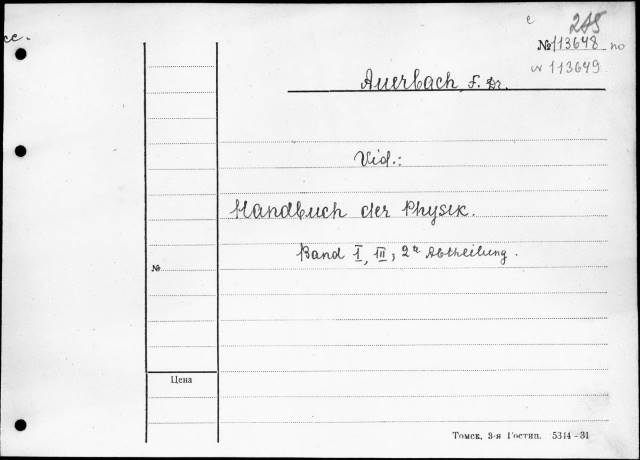 с 215
сс. №113648 по
113649
Auerbach, F. Dr.
Vid.:
Handbuch der Physik.
Band I, III, 2te Abtheilung.
№
Цена
Томск, 3-я Гостип. 5314-31